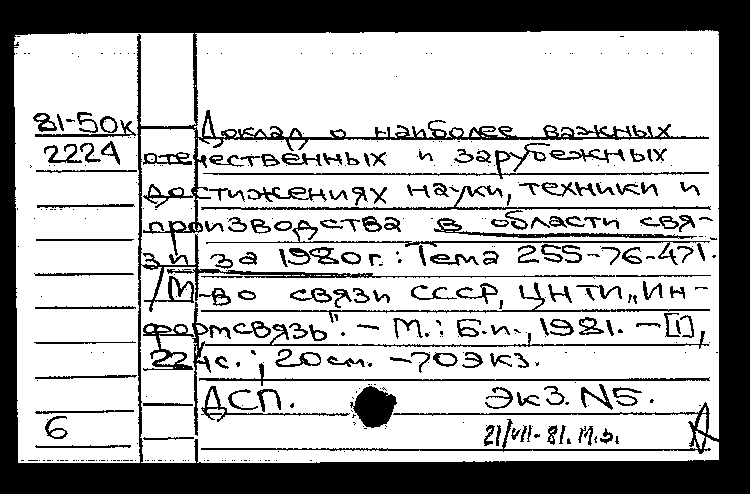 81-50к Доклад о наиболее важных
2224 отечественных и зарубежных
достижениях науки, техники и
производства в области свя-
зи за 1980г.: Тема 255-76-471.
/М-во связи СССР, ЦНТИ „Ин-
формсвязь". - М.: Б.и., 1981. - [1],
224с.; 20см. - 70экз.
ДСП. Экз. №5.
6 21/VII-81. М.з.